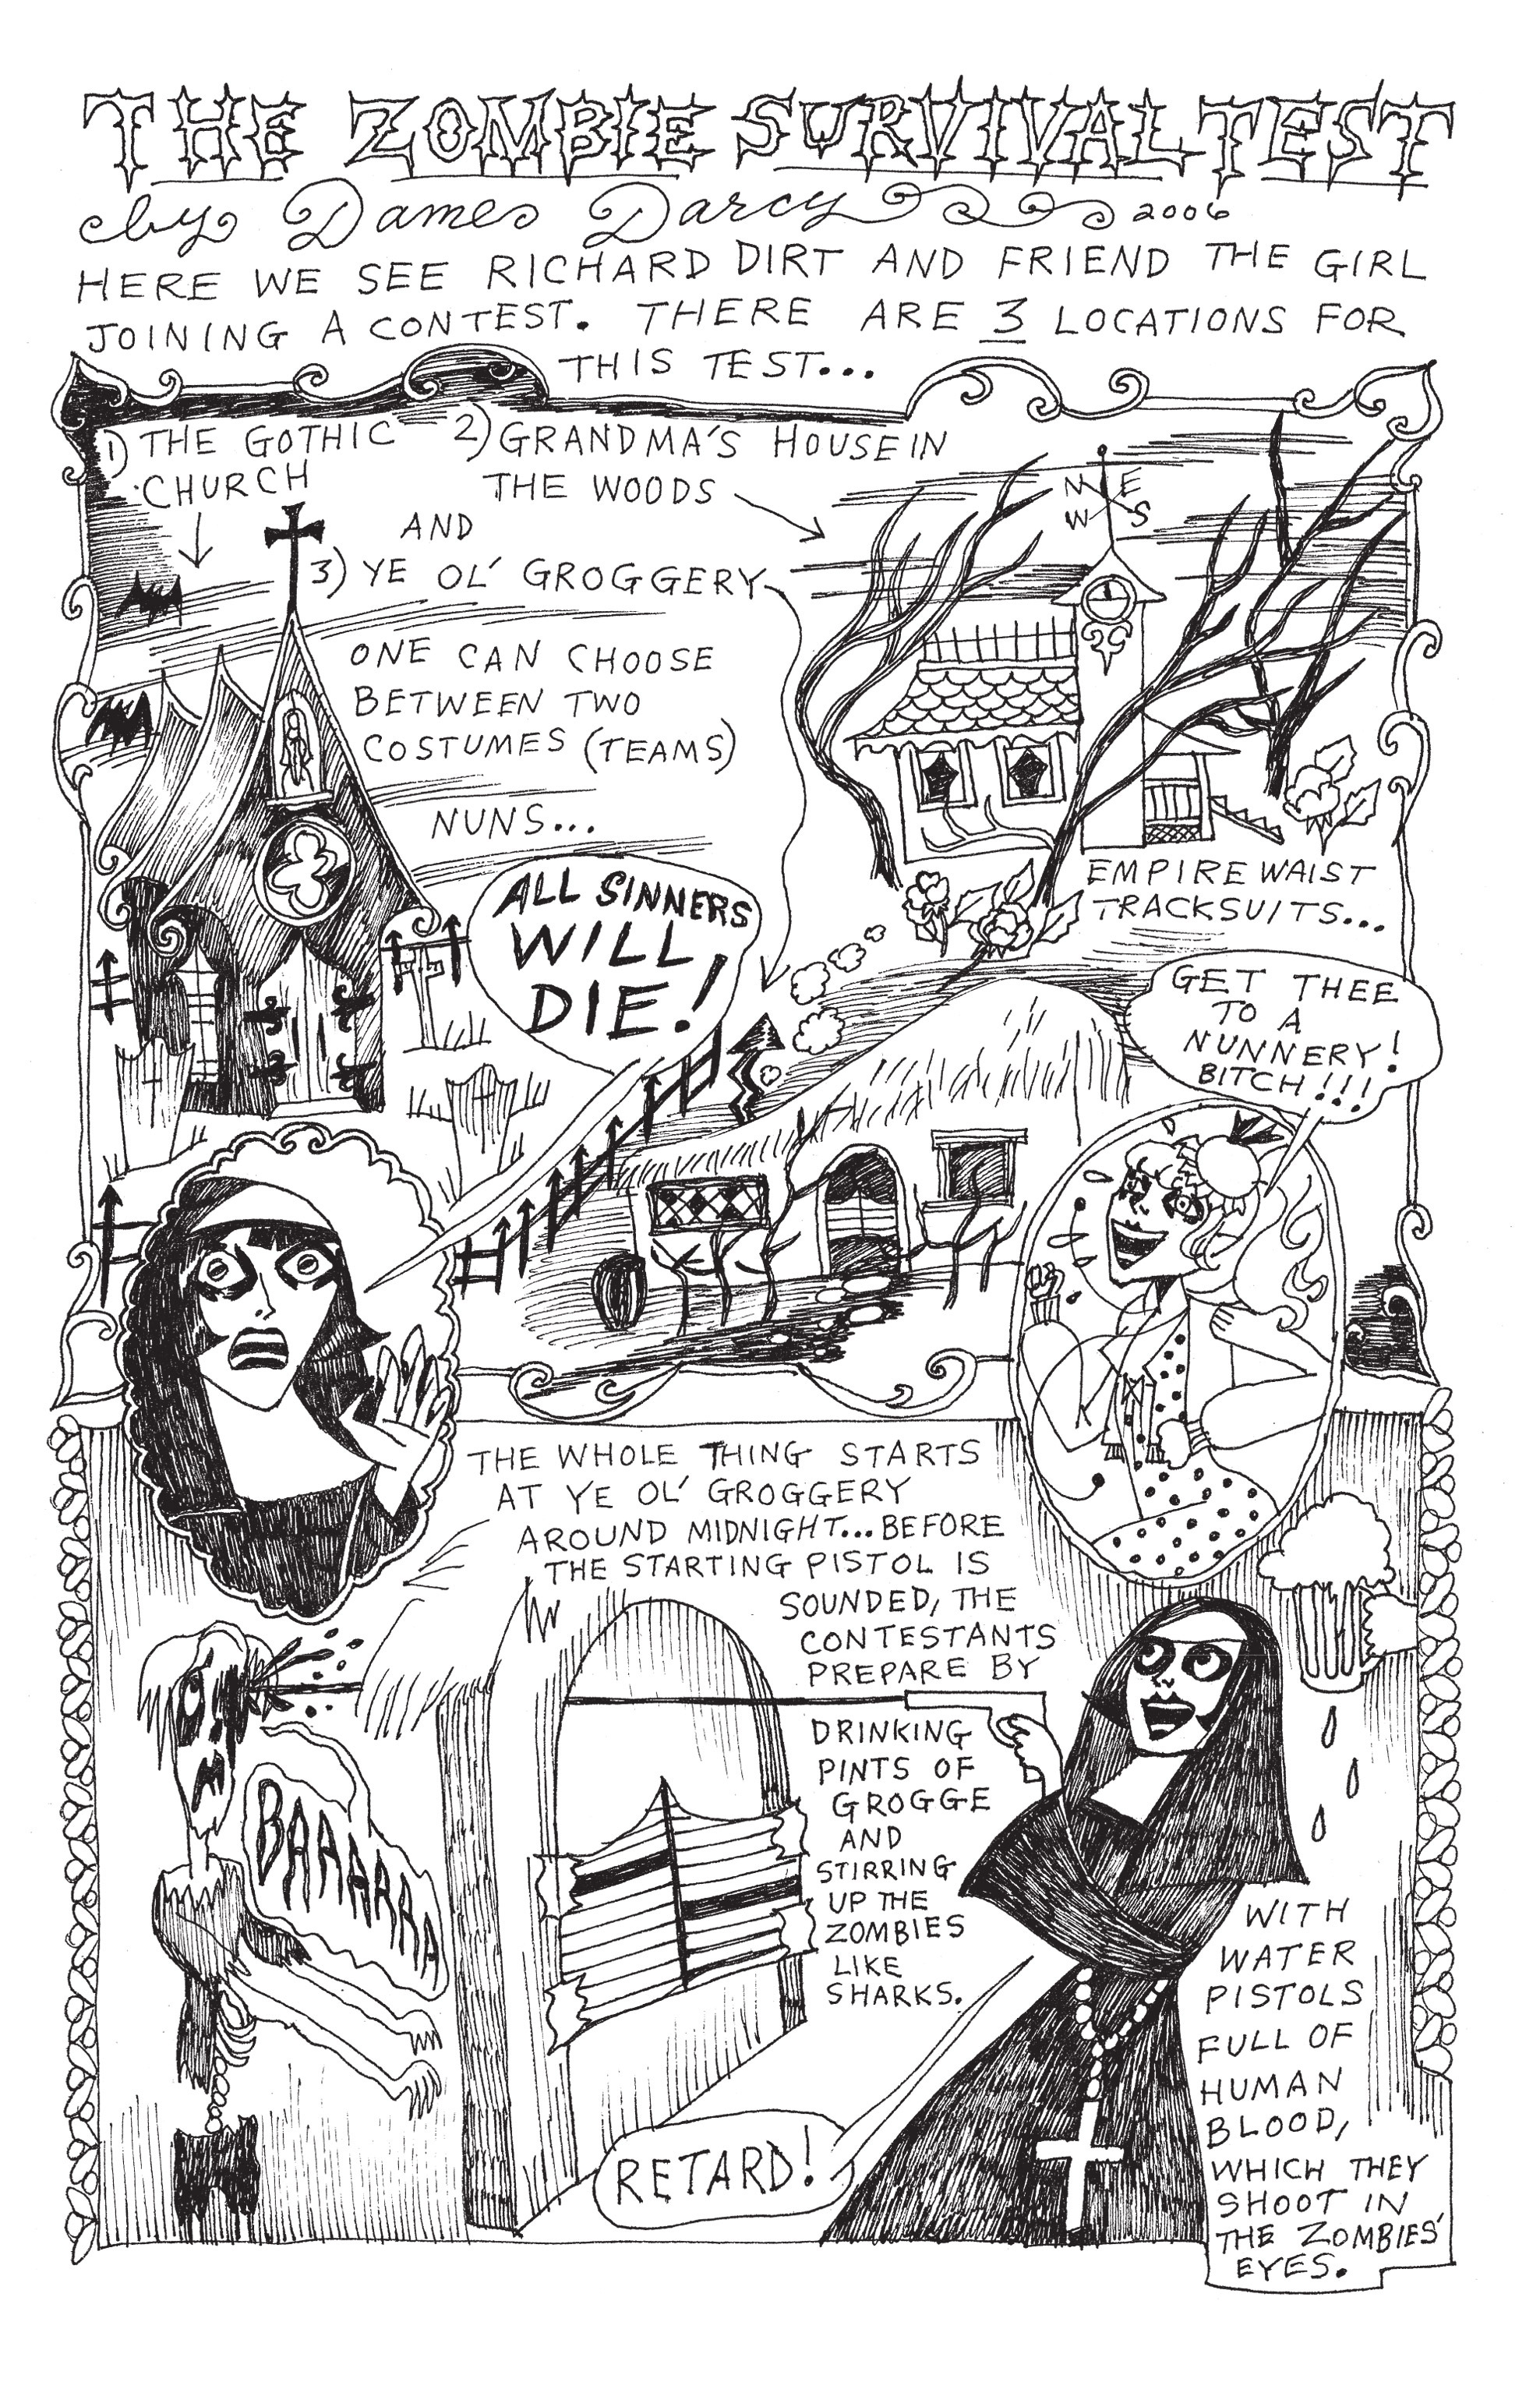 THE ZOMBIE SURVIVAL TEST
by Dame Darcy 2006
HERE WE SEE RICHARD DIRT AND FRIEND THE GIRL
JOINING A CONTEST. THERE ARE 3 LOCATIONS FOR
THIS TEST...
1) THE GOTHIC
CHURCH
2) GRANDMA'S HOUSE IN
THE WOODS
AND
3) YE OL' GROGGERY
N E
W S
ONE CAN CHOOSE
BETWEEN TWO
COSTUMES (TEAMS)
NUNS...
ALL SINNERS
WILL
DIE!
EMPIRE WAIST
TRACKSUITS...
GET THEE
TO A
NUNNERY!
BITCH!!!
THE WHOLE THING STARTS
AT YE OL' GROGGERY
AROUND MIDNIGHT... BEFORE
THE STARTING PISTOL IS
SOUNDED, THE
CONTESTANTS
PREPARE BY
DRINKING
PINTS OF
GROGGE
AND
STIRRING
UP THE
ZOMBIES
LIKE
SHARKS.
BAAARRRA
RETARD!
WITH
WATER
PISTOLS
FULL OF
HUMAN
BLOOD,
WHICH THEY
SHOOT IN
THE ZOMBIES'
EYES.